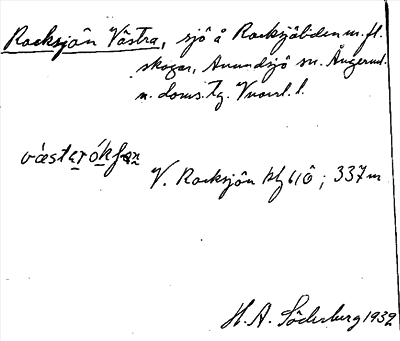 Rocksjön Västra, sjö å Rocksjöliden m. fl.
skogar, Anundsjö sn. Ångerml.
n. doms. tg. Vnorrl. l.
västerókʃǝn
V. Rocksjön kbl 61Ö; 337 m
H. A. Söderburg 1932